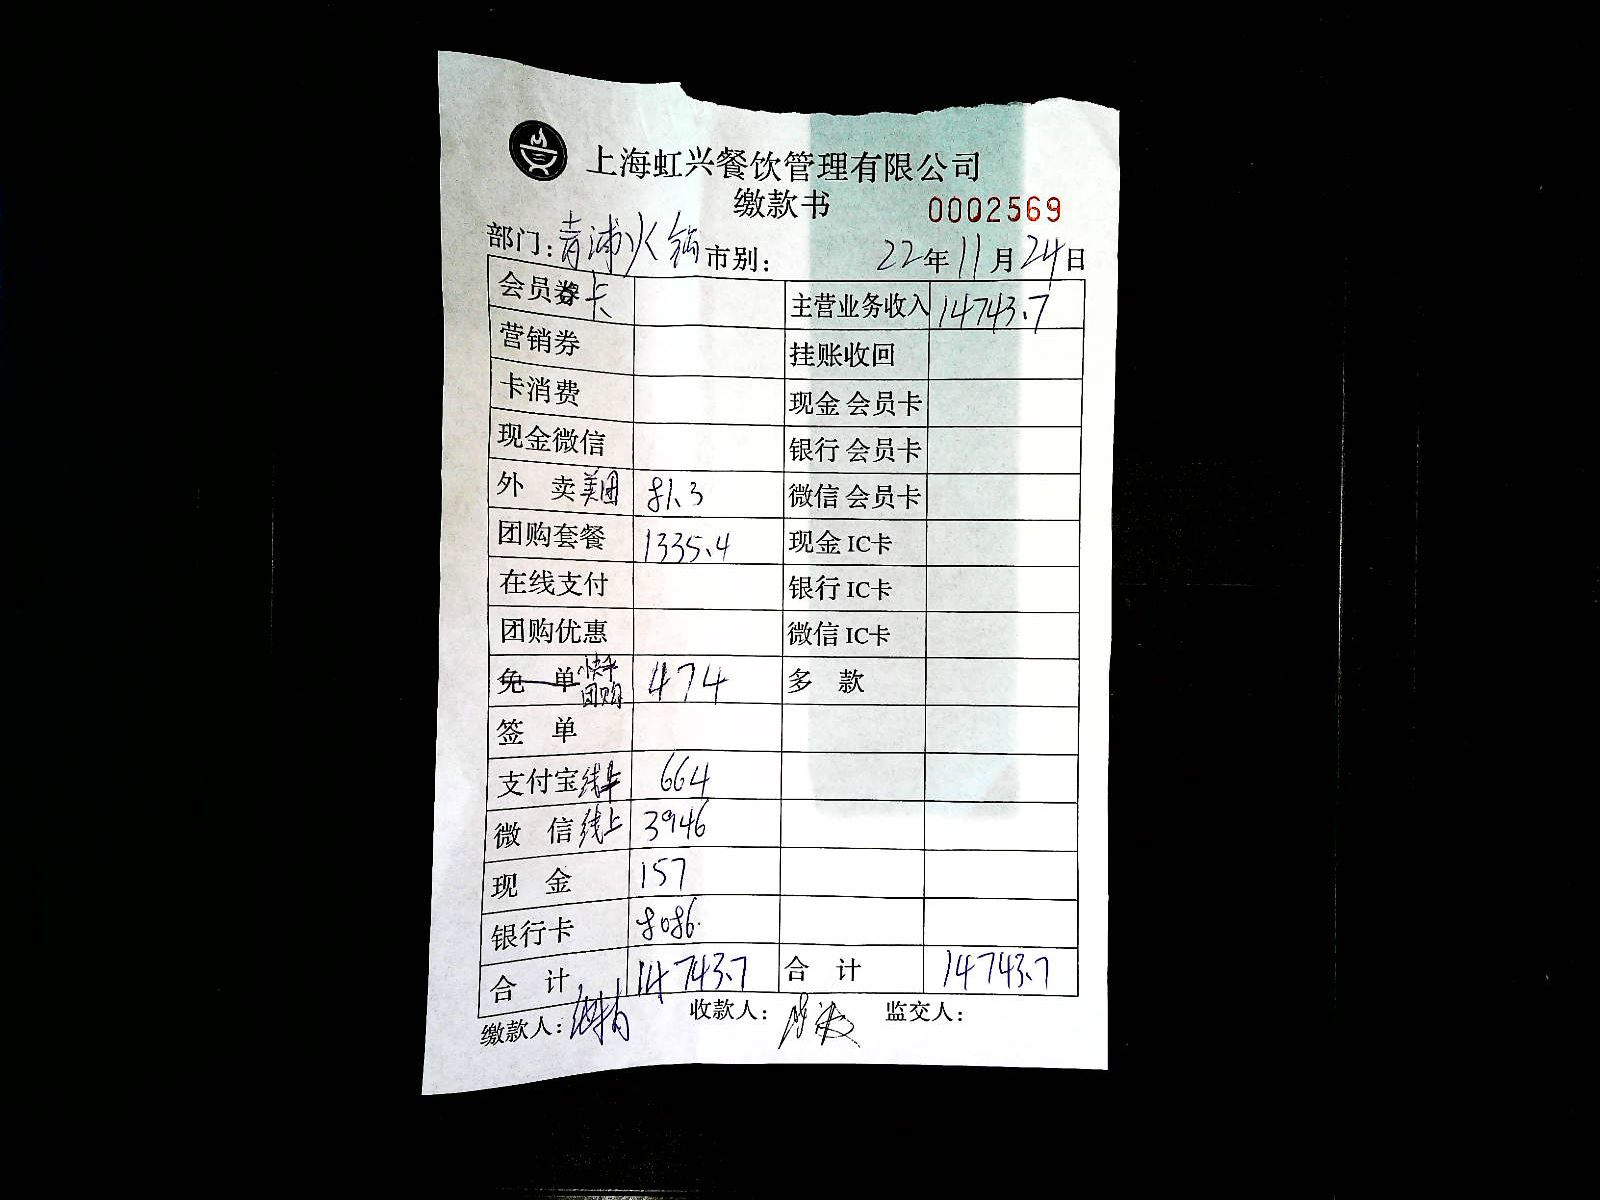 上海虹兴餐饮管理有限公司
缴款书 0002569
部门：青浦火锅 市别： 22年11月24日
会员卡 主营业务收入 14743.7
营销券 挂账收回
卡消费 现金 会员卡
现金微信 银行 会员卡
外 卖 美团 81.3 微信 会员卡
团购套餐 1335.4 现金 IC卡
在线支付 银行 IC卡
团购优惠 微信 IC卡
免 单 快手团购 474 多 款
签 单
支付宝 线上 664
微 信 线上 3946
现 金 157
银行卡 8086.
合 计 14743.7 合 计 14743.7
缴款人： 收款人： 监交人：